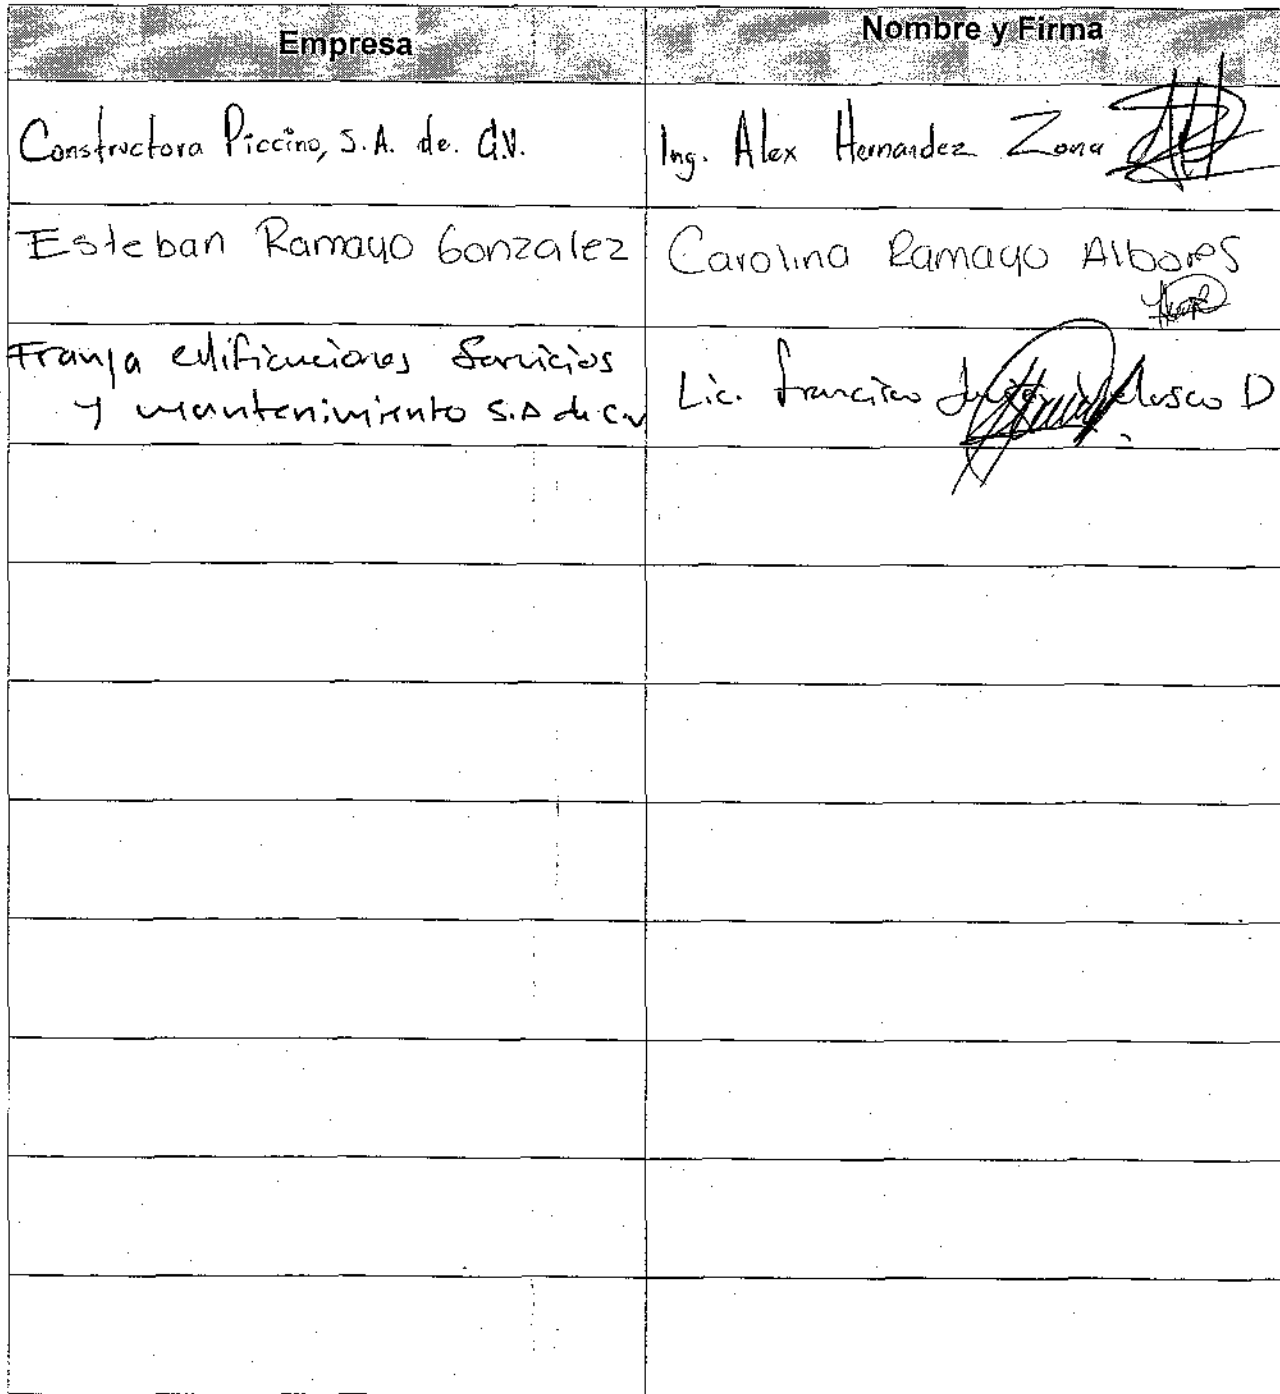 Empresa Nombre y Firma
Constructora Piccino, S.A. de. C.V. Ing. Alex Hernandez Zona
Esteban Ramayo Gonzalez Carolina Ramayo Albores
Franja edificaciones Servicios
y mantenimiento S.A de C.V Lic. Francisco D